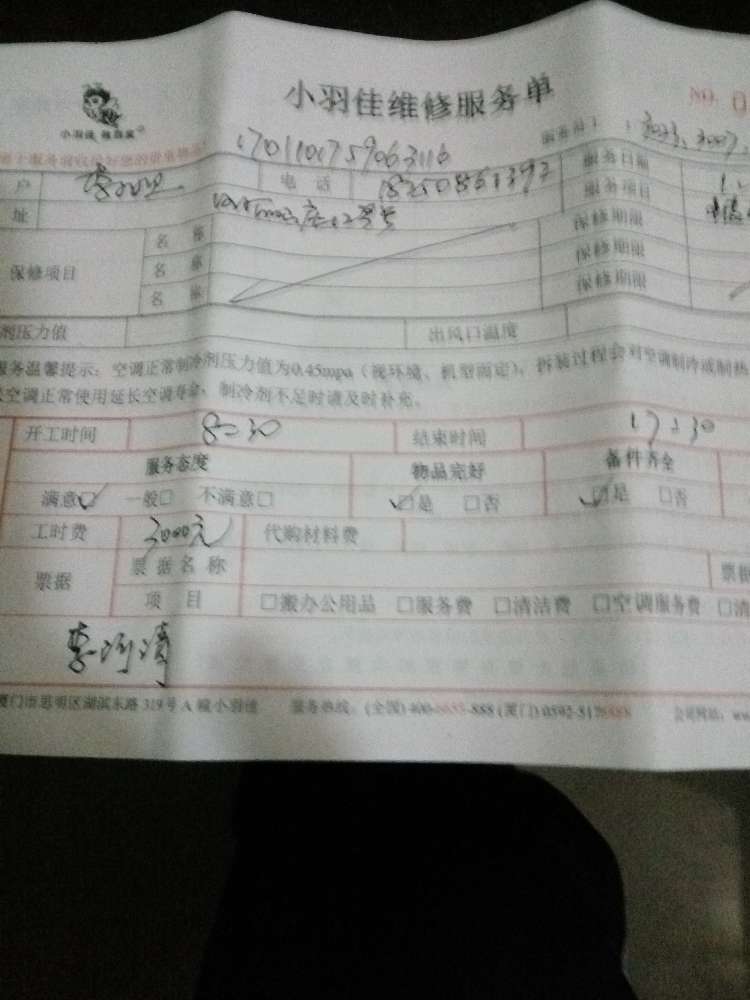 小羽佳维修服务单
NO. 0
小羽佳 维修家
1701101759063116
户 电话 18250861392 服务日期
址 服务项目
保修项目 名称 保修期限
名称 保修期限
名称 保修期限
剂压力值 出风口温度
服务温馨提示：空调正常制冷剂压力值为0.45mpa（视环境、机型而定），拆装过程会对空调制冷或制热
空调正常使用延长空调寿命，制冷剂不足时请及时补充。
开工时间 8:30 结束时间 17:30
服务态度 物品完好 备件齐全
满意☑ 一般□ 不满意□ ☑是 □否 ☑是 □否
工时费 3000元 代购材料费
票据 票据名称 票据
项目 □搬办公用品 □服务费 □清洁费 □空调服务费 □清
厦门市思明区湖滨东路319号A幢小羽佳 服务热线：(全国)400-6655-888 (厦门)0592-5178888 公司网站：ww